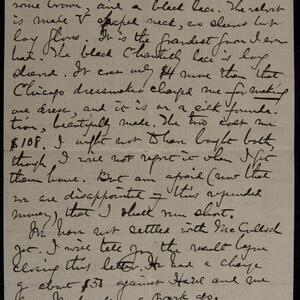 some brown, and a black lace. The velvet
is made V shaped neck, no sleeves but
long gloves. It is the grandest gown I ever
had. The black Chantilly lace is long
sleeved. It cost only $4 more than that
Chicago dressmaker charged me for making
one dress, and it is on a silk founda-
tion, beautifully made. The two cost me
$108. I ought not to have bought both,
though I will not regret it when I get
them home. But am afraid (now that
we are disappointed in this refunded
money) that I shall run short.
I have not settled with McCulloch
yet. I will tell you the result before
closing this letter. He had a charge
of about $50 against Hazel and me